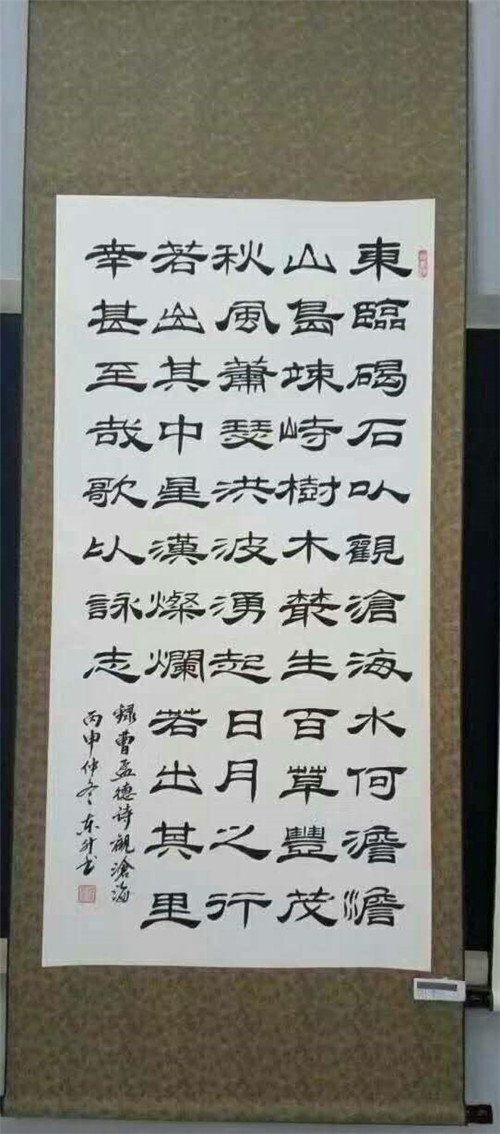 東臨碣石以觀滄海水何澹澹
山島竦峙樹木叢生百草豐茂
秋風蕭瑟洪波湧起日月之行
若出其中星漢燦爛若出其里
幸甚至哉歌以詠志
録曹孟德诗觀滄海
丙申仲冬东升书